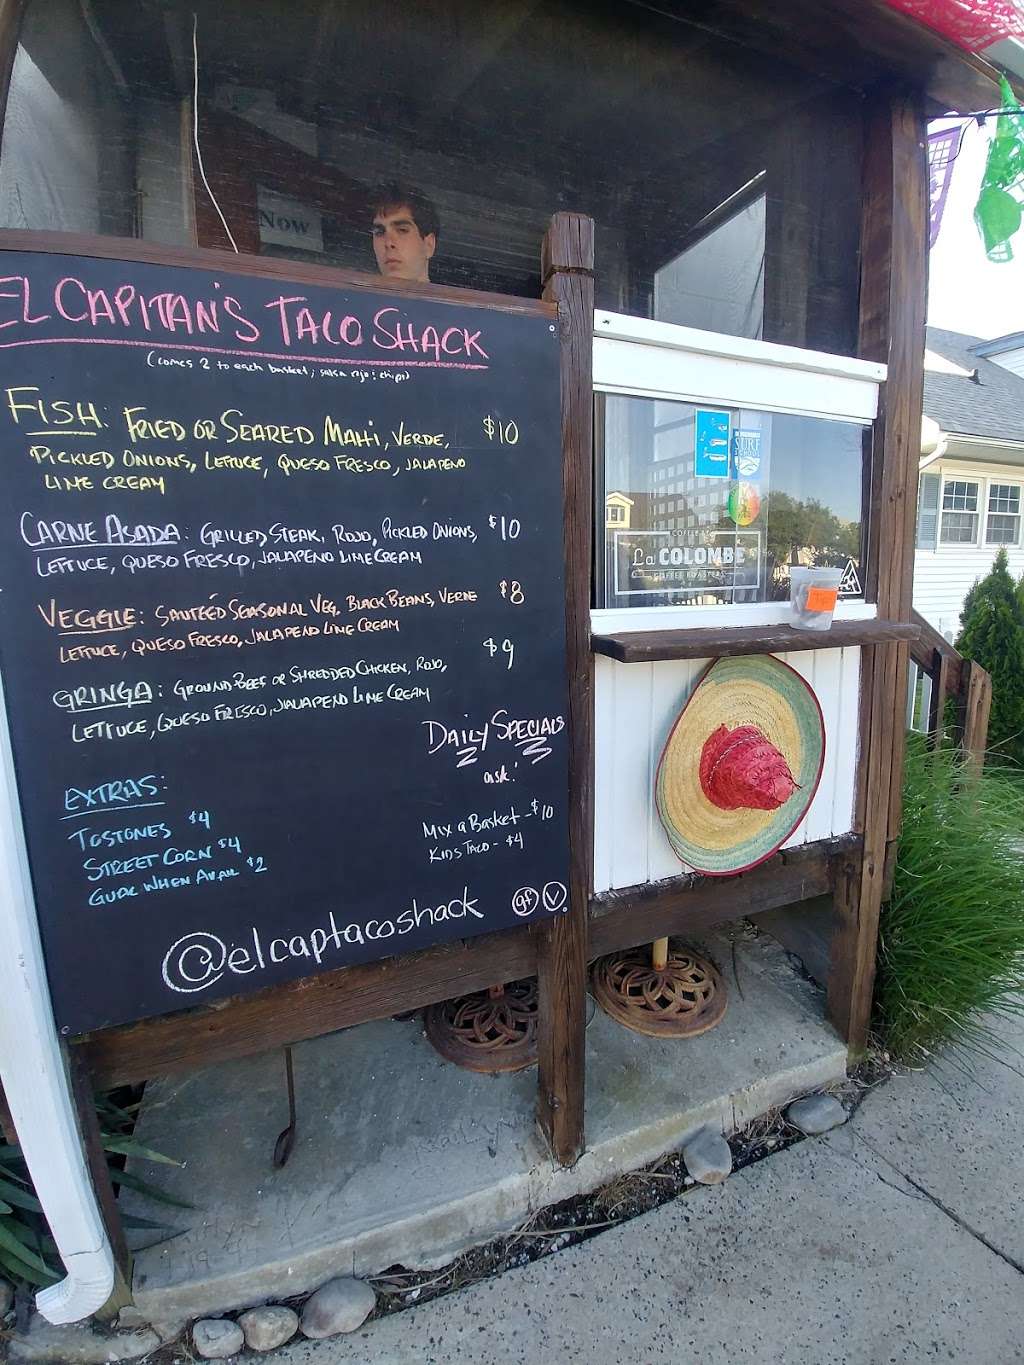 Now
EL CAPITAN'S TACO SHACK
(comes 2 to each basket; salsa rojo; chips)
FISH: FRIED OR SEARED MAHI, VERDE, $10
PICKLED ONIONS, LETTUCE, QUESO FRESCO, JALAPENO
LIME CREAM
CARNE ASADA: GRILLED STEAK, ROJO, PICKLED ONIONS, $10
LETTUCE, QUESO FRESCO, JALAPENO LIME CREAM
VEGGIE: SAUTEÉD SEASONAL VEG, BLACK BEANS, VERDE $8
LETTUCE, QUESO FRESCO, JALAPENO LIME CREAM
GRINGA: GROUND BEEF OR SHREDDED CHICKEN, ROJO, $9
LETTUCE, QUESO FRESCO, JALAPENO LIME CREAM
DAILY SPECIALS
ask!
EXTRAS:
TOSTONES $4
STREET CORN $4
GUAC WHEN AVAIL $2
MIX A BASKET - $10
KIDS TACO - $4
@elcaptacoshack
gf V
SURF
SCHOOL
La COLOMBE
COFFEE ROASTERS